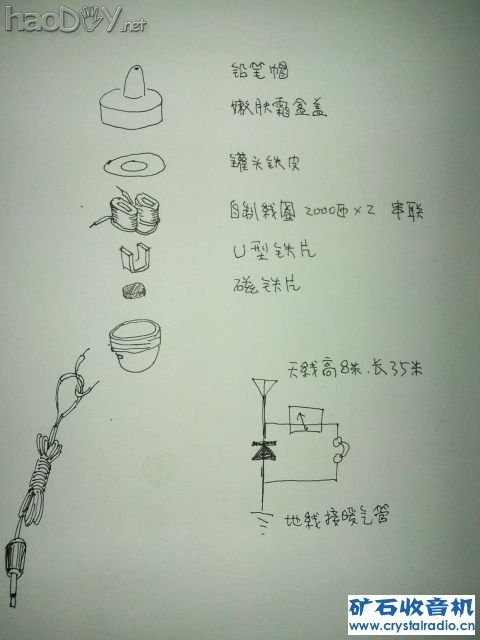 haoDIY.net
铅笔帽
嫩肤霜盒盖
罐头铁皮
自制线圈 2000匝×2 串联
U型铁片
磁铁片
天线高8米.长35米
地线接暖气管
矿石收音机
www.crystalradio.cn